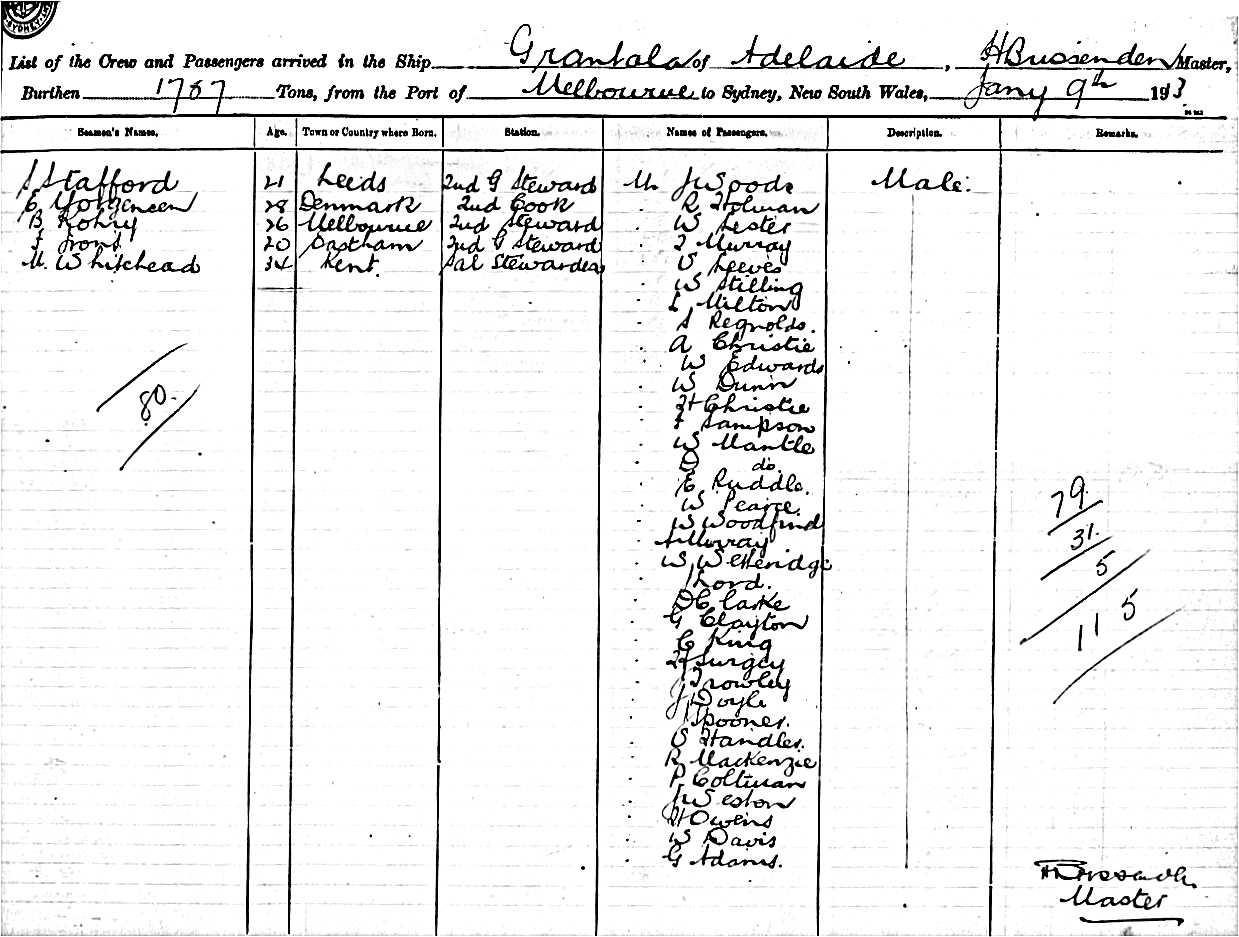 SYDNEY
List of the Crew and Passengers arrived in the Ship Grantala of Adelaide, H Bussenden Master,
Burthen 1787 Tons, from the Port of Melbourne to Sydney, New South Wales, Jany 9th 1913
Seamen's Names. Age. Town or Country where Born. Station. Names of Passengers. Description. Remarks.
S Stafford 21 Leeds 2nd G Steward Mr J Woods Male.
C Yorgensen 28 Denmark 2nd Cook R Holman
B Rohry 26 Melbourne 2nd Steward W Lester
F Irons 20 Eastham 2nd G Steward T Murray
M. Whitehead 34 Kent. Sal Stewardess V Leeves
W Stilling
L Milton
S Reynolds.
A Christie
W Edwards
W Dunn
80.
H Christie
F Sampson
W Mantle
D do.
E Ruddle.
W Pearce.
79.
W Woodfind
31.
A Murray
W Wetheridge
5
J Lord.
D Clarke
G Clayton
115
C King
H Surgey
J Trowley
J Doyle
J Spooner.
V Handler.
R Mackenzie
P Coltman
J Weston
H Owens
W Davis
G Adams.
H Bussenden
Master